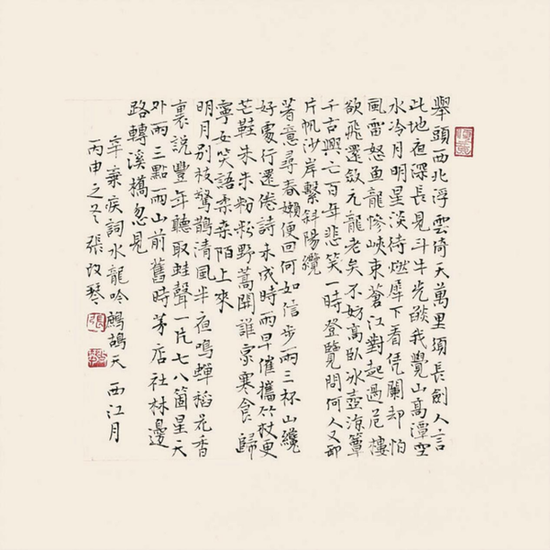 舉頭西北浮雲倚天萬里須長劍人言
此地夜深長見斗牛光燄我覺山高潭空
水冷月明星淡待燃犀下看凭闌却怕
風雷怒魚龍慘峽束蒼江對起過危樓
欲飛還斂元龍老矣不妨高臥冰壺涼簟
千古興亡百年悲笑一時登覽問何人又卸
片帆沙岸繫斜陽纜
著意尋春懶便回何如信步兩三杯山纔
好處行還倦詩未成時雨早催攜竹杖更
芒鞋朱朱粉粉野蒿開誰家寒食歸
寧女笑語柔柔陌上來
明月別枝驚鵲清風半夜鳴蟬稻花香
裏說豐年聽取蛙聲一片七八箇星天
外兩三點雨山前舊時茅店社林邊
路轉溪橋忽見
辛棄疾詞水龍吟鷓鴣天 西江月
丙申之冬張改琴